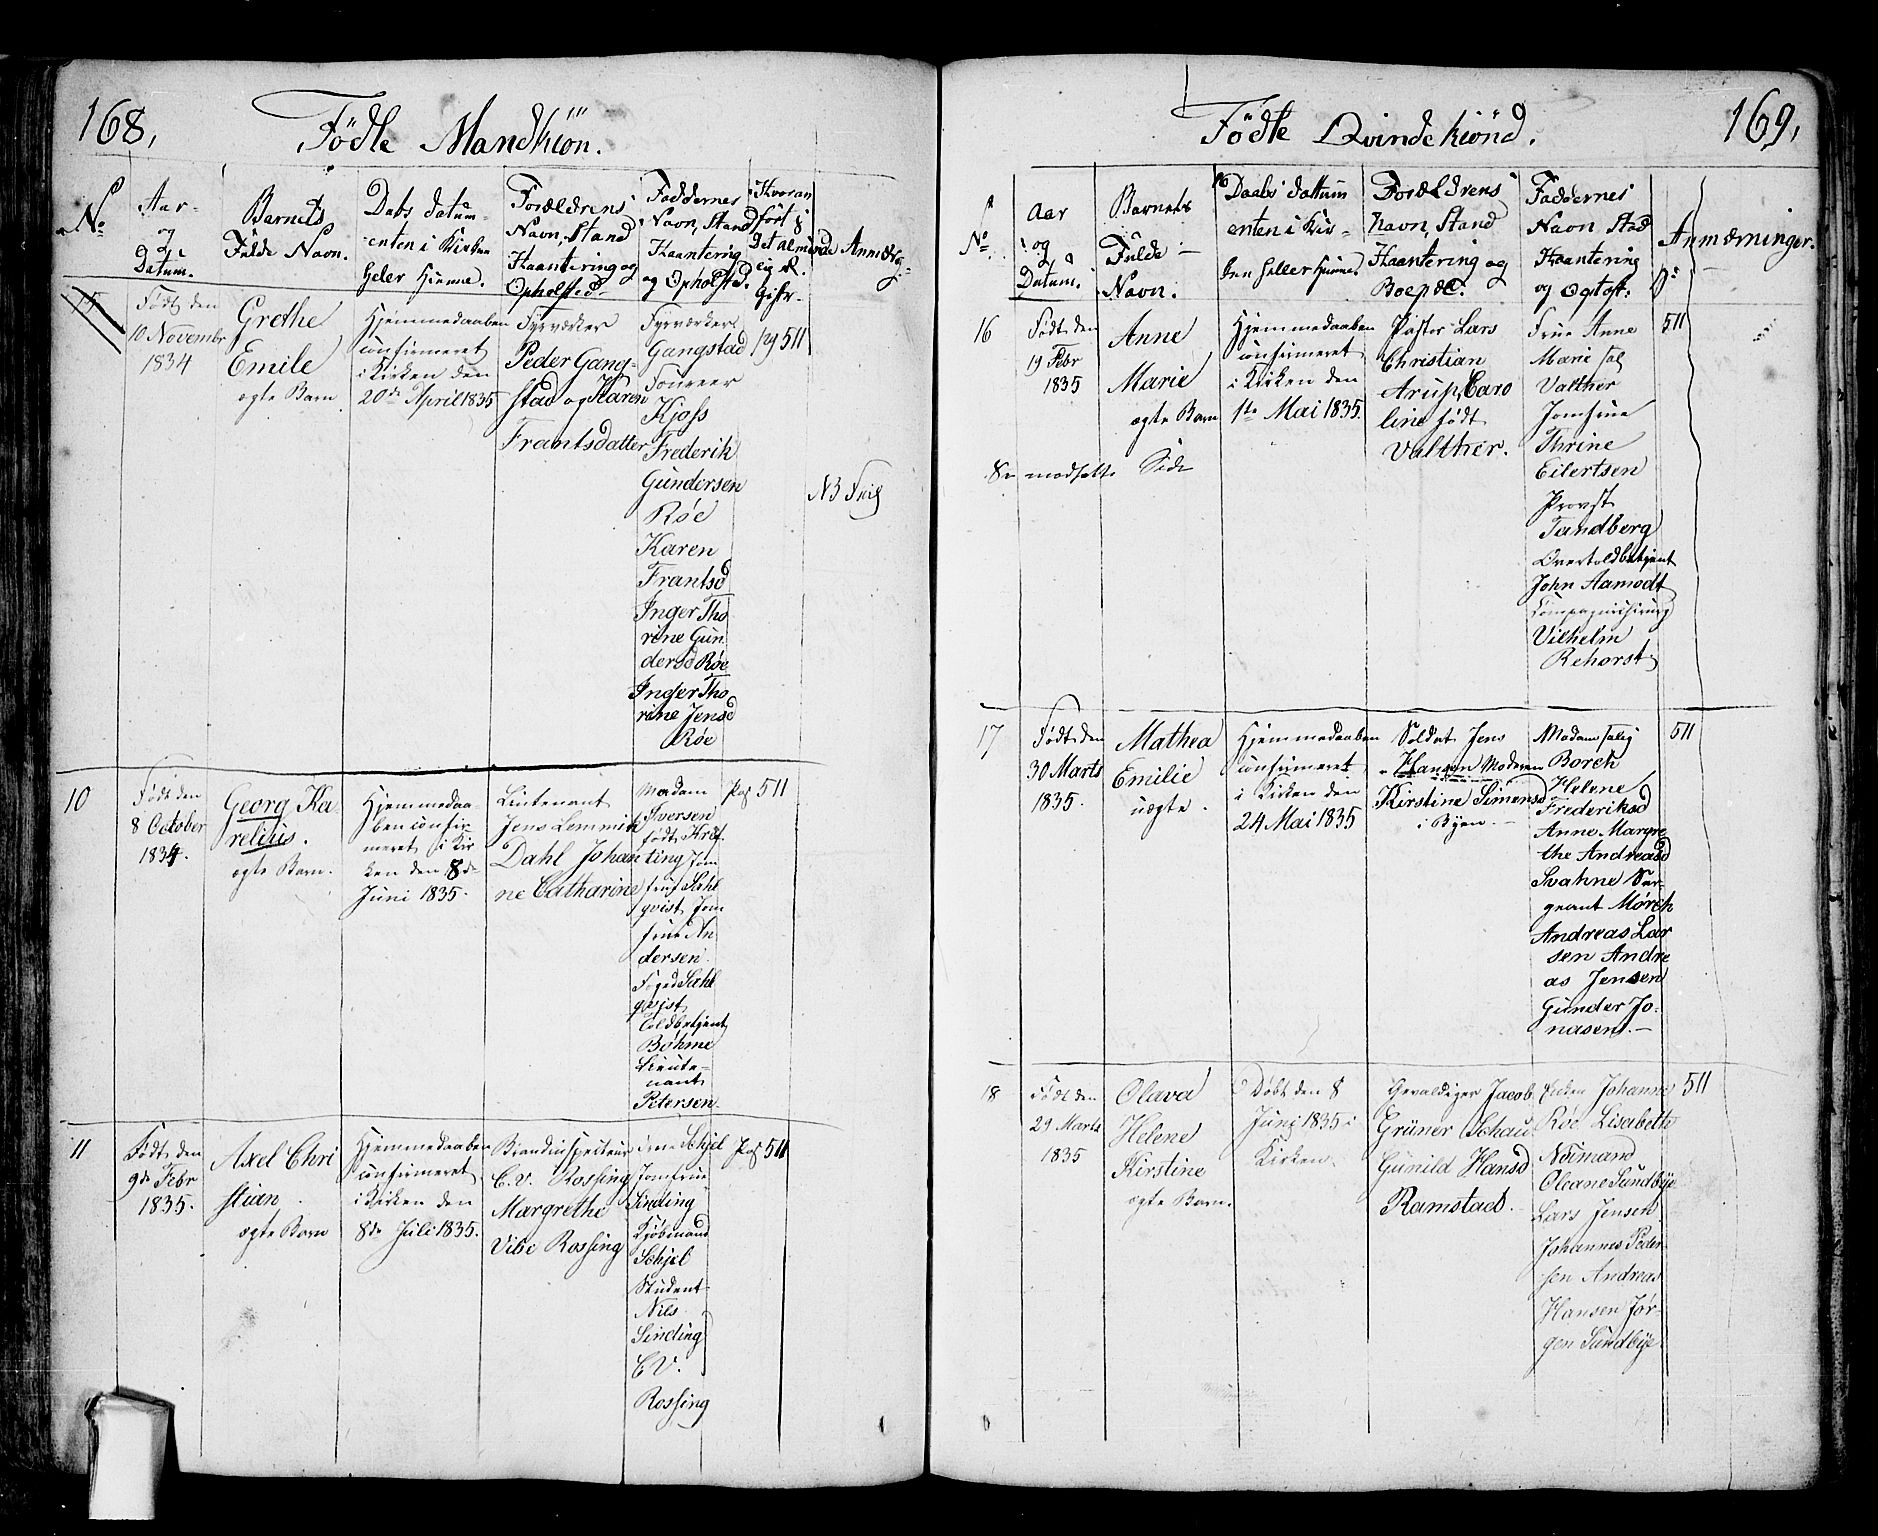 168,
Födte Mandkiön.
No
Aar
og
Datum.
Barnets
Fulde Navn.
Dabs datum
enten i Kirken
heler Hiemme.
Forældrens
Navn, Stand
Haantering og
Opholsted
Faddernes
Navn, Stand
Haantering
og Opholsted.
Hvoran
fört i
Det Almi
15
Födt den
10 Novembr
1834
Grethe
Emilie
ægte Barn
Hjemmedaaben
confirmeret
i Kirken den
20de April 1835
Fyrværker
Peder Gang-
stad og Karen
Frantsdatter
Fyrværker
Gangstad
Foureer
Kjoss
Frederik
Gundersen
Röe
Karen
Frantsd
Inger Tho
rine Gun
dersd Röe
Inger Tho
rine Jensd
Röe
pag 511
10
Födt den
8 October
1834.
Georg Ka
relius.
ægte Barn.
Hjemmedaa-
ben confir
meret i Kir
ken den 8de
Juni 1835.
Lieutenant
Jens Lemmik
Dahl Johan
ne Catharine
Madam
Iversen
födt Kref
ting Jom
fru Sehl
qvist Jom
frue An
dersen.
Foged Sæhl
qvist
Toldbetjent
Böhme
Lieute-
nant
Petersen.
Pag 511
11
Födt den
9de Febr
1835.
Axel Chri
stian
ægte Barn
Hjemmedaaben
confirmeret
i Kirken den
8de Juli 1835.
Brandinspecteur
C. V. Rossing
Margrethe
Vibe Rossing
Frue Schjel
Jomfrue
Sinding
Kjöbmand
Schjel
Student
Nils
Sinding
C V.
Rossing
Pag 511
169,
Födte Qvindekiönd.
No
Aar
og
Datum.
Barnets
Fulde
Navn.
Daabs dattum
enten i Kir-
ken heller Hiemme
Forældrens
Navn, Stand
Haantering og
Boepæl.
Faddernes
Navn Stad
Haantering
og
Anmærninger.
16
Födt den
19 Febr
1835
Anne
Marie
ægte Barn
Hjemmedaaben
confirmeret
i Kirken den
1ste Mai 1835.
Pastor Lars
Christian
Arup, Caro
line födt
Valther.
Frue Anne
Marie sal
Valther
Jomfrue
Thrine
Eilertsen
Provst
Tandberg
Overtoldbetjent
John Aamodt
Compagnichirurg
Vilhelm
Rehorst
511
Se modsatte Side
17
Födt den
30 Marts
1835.
Mathea
Emilie
uægte.
Hjemmedaaben
confirmeret
i Kirken den
24 Mai 1835
Soldat Jens
Hansen Moderen
Kirstine Simensd
i Byen.
Madam salig
Borch
Helene
Frederiksd
Anne Margre
the Andreasd
Svahne Ser-
geant Mörch
Andreas Lar
sen Andre
as Jensen
Gunder Jo-
nasen.
511
18
Födt den
29 Marts
1835
Olava
Helene
Kirstine
ægte Barn.
Döbt den 8
Juni 1835 i
Kirken.
Gevaldiger Jacob
Grüner Schau
Gunild Hansd
Ramstad.
Enken Johanne
Röe Lisabethe
Naimand
Oleane Sundbye
Lars Jensen
Johannes Peder
sen Andreas
Hansen Jör-
gen Sundbye.
511